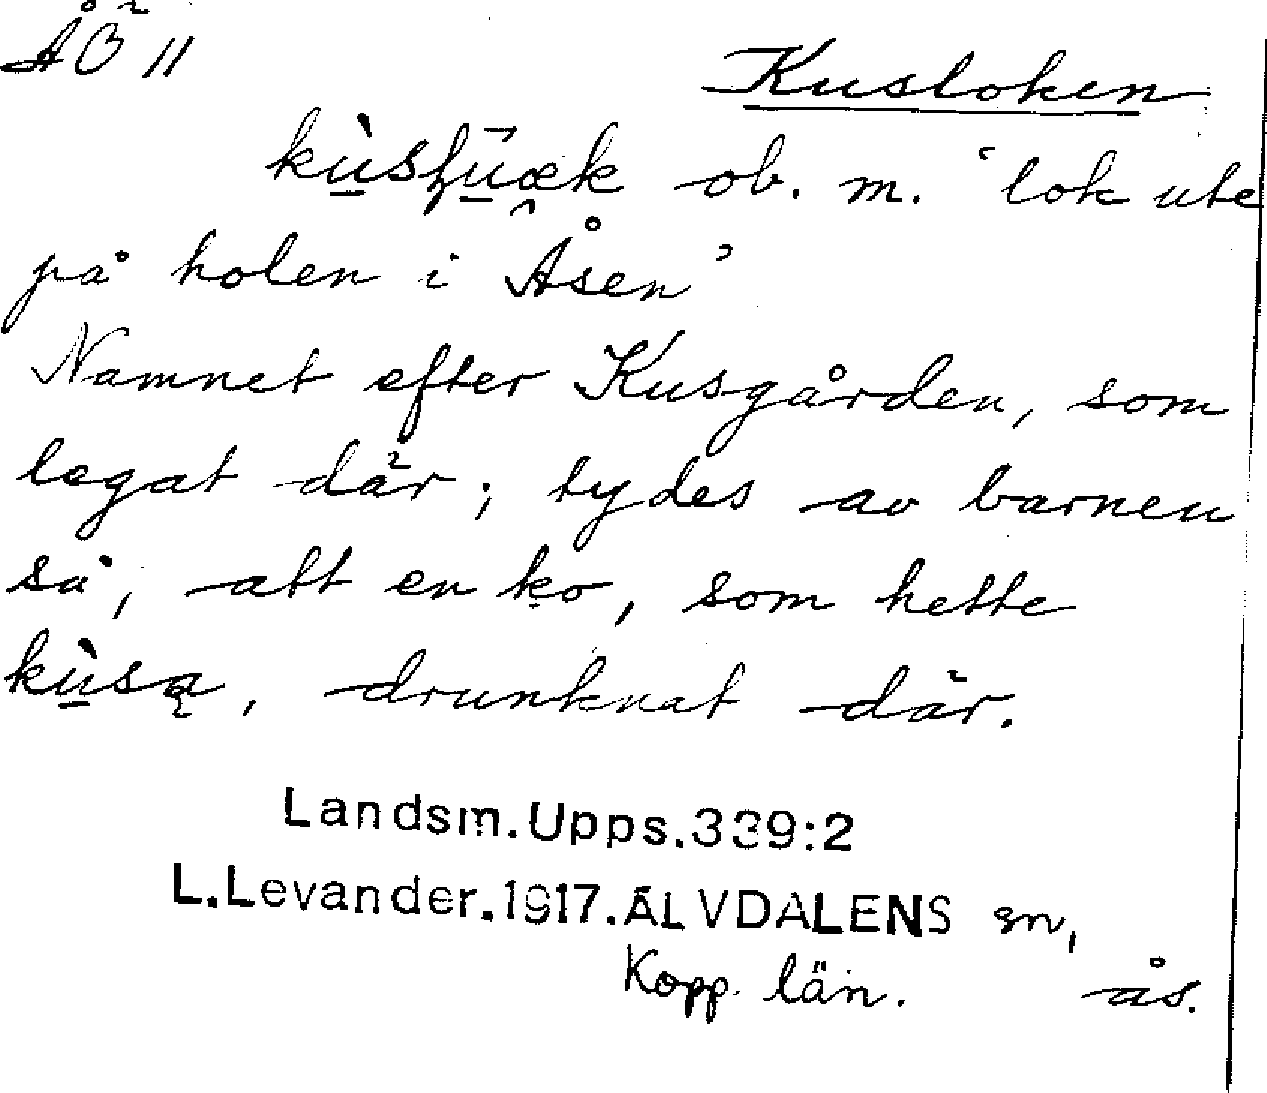 ÅÖ 11
Kusloken
ob. m. 'lok ute
på holen i Åsen'
Namnet efter Kusgården, som
legat där; tydes av barnen
så, att en ko, som hette
kùsą, drunknat där.
Landsm.Upps.339:2
L.Levander.1917.ÄLVDALENS sn,
Kopp. län. ås.